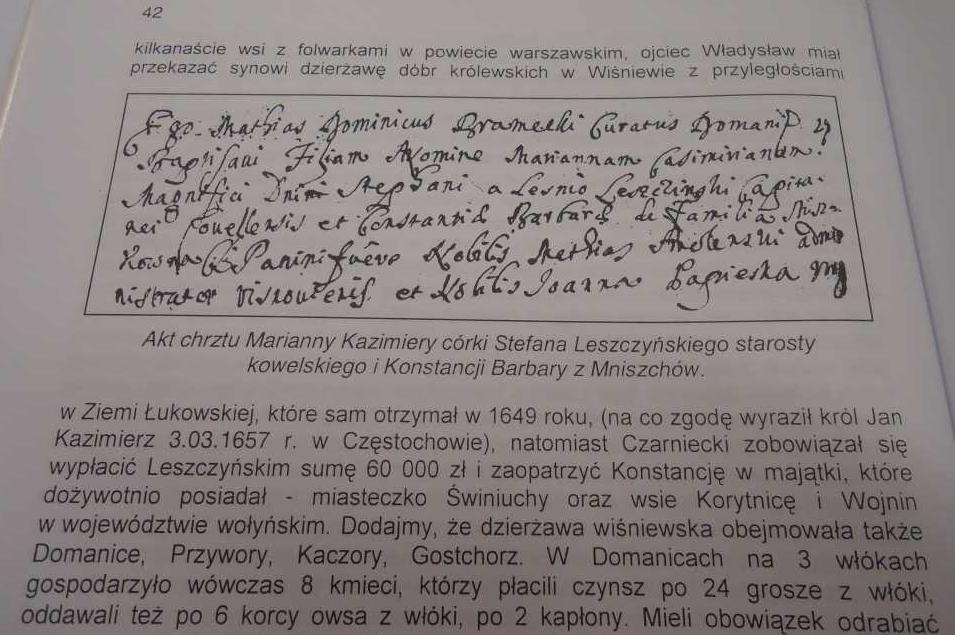 42
kilkanaście wsi z folwarkami w powiecie warszawskim, ojciec Władysław miał
przekazać synowi dzierżawę dóbr królewskich w Wiśniewie z przyległościami
Ego Mathias Dominicus Curatus
Baptisavi Filiam Nomine Mariannam Casimirianam
Magnifici Dnni Stephani a Lesnio Leszczinski Capita-
nei Couellensis et Constantiæ Barbaræ de Familia Misz-
Panini fuere Nobilis Mathias
nistrator et Nobilis Joanna
Akt chrztu Marianny Kazimiery córki Stefana Leszczyńskiego starosty
kowelskiego i Konstancji Barbary z Mniszchów.
w Ziemi Łukowskiej, które sam otrzymał w 1649 roku, (na co zgodę wyraził król Jan
Kazimierz 3.03.1657 r. w Częstochowie), natomiast Czarniecki zobowiązał się
wypłacić Leszczyńskim sumę 60 000 zł i zaopatrzyć Konstancję w majątki, które
dożywotnio posiadał - miasteczko Świniuchy oraz wsie Korytnicę i Wojnin
w województwie wołyńskim. Dodajmy, że dzierżawa wiśniewska obejmowała także
Domanice, Przywory, Kaczory, Gostchorz. W Domanicach na 3 włókach
gospodarzyło wówczas 8 kmieci, którzy płacili czynsz po 24 grosze z włóki,
oddawali też po 6 korcy owsa z włóki, po 2 kapłony. Mieli obowiązek odrabiać